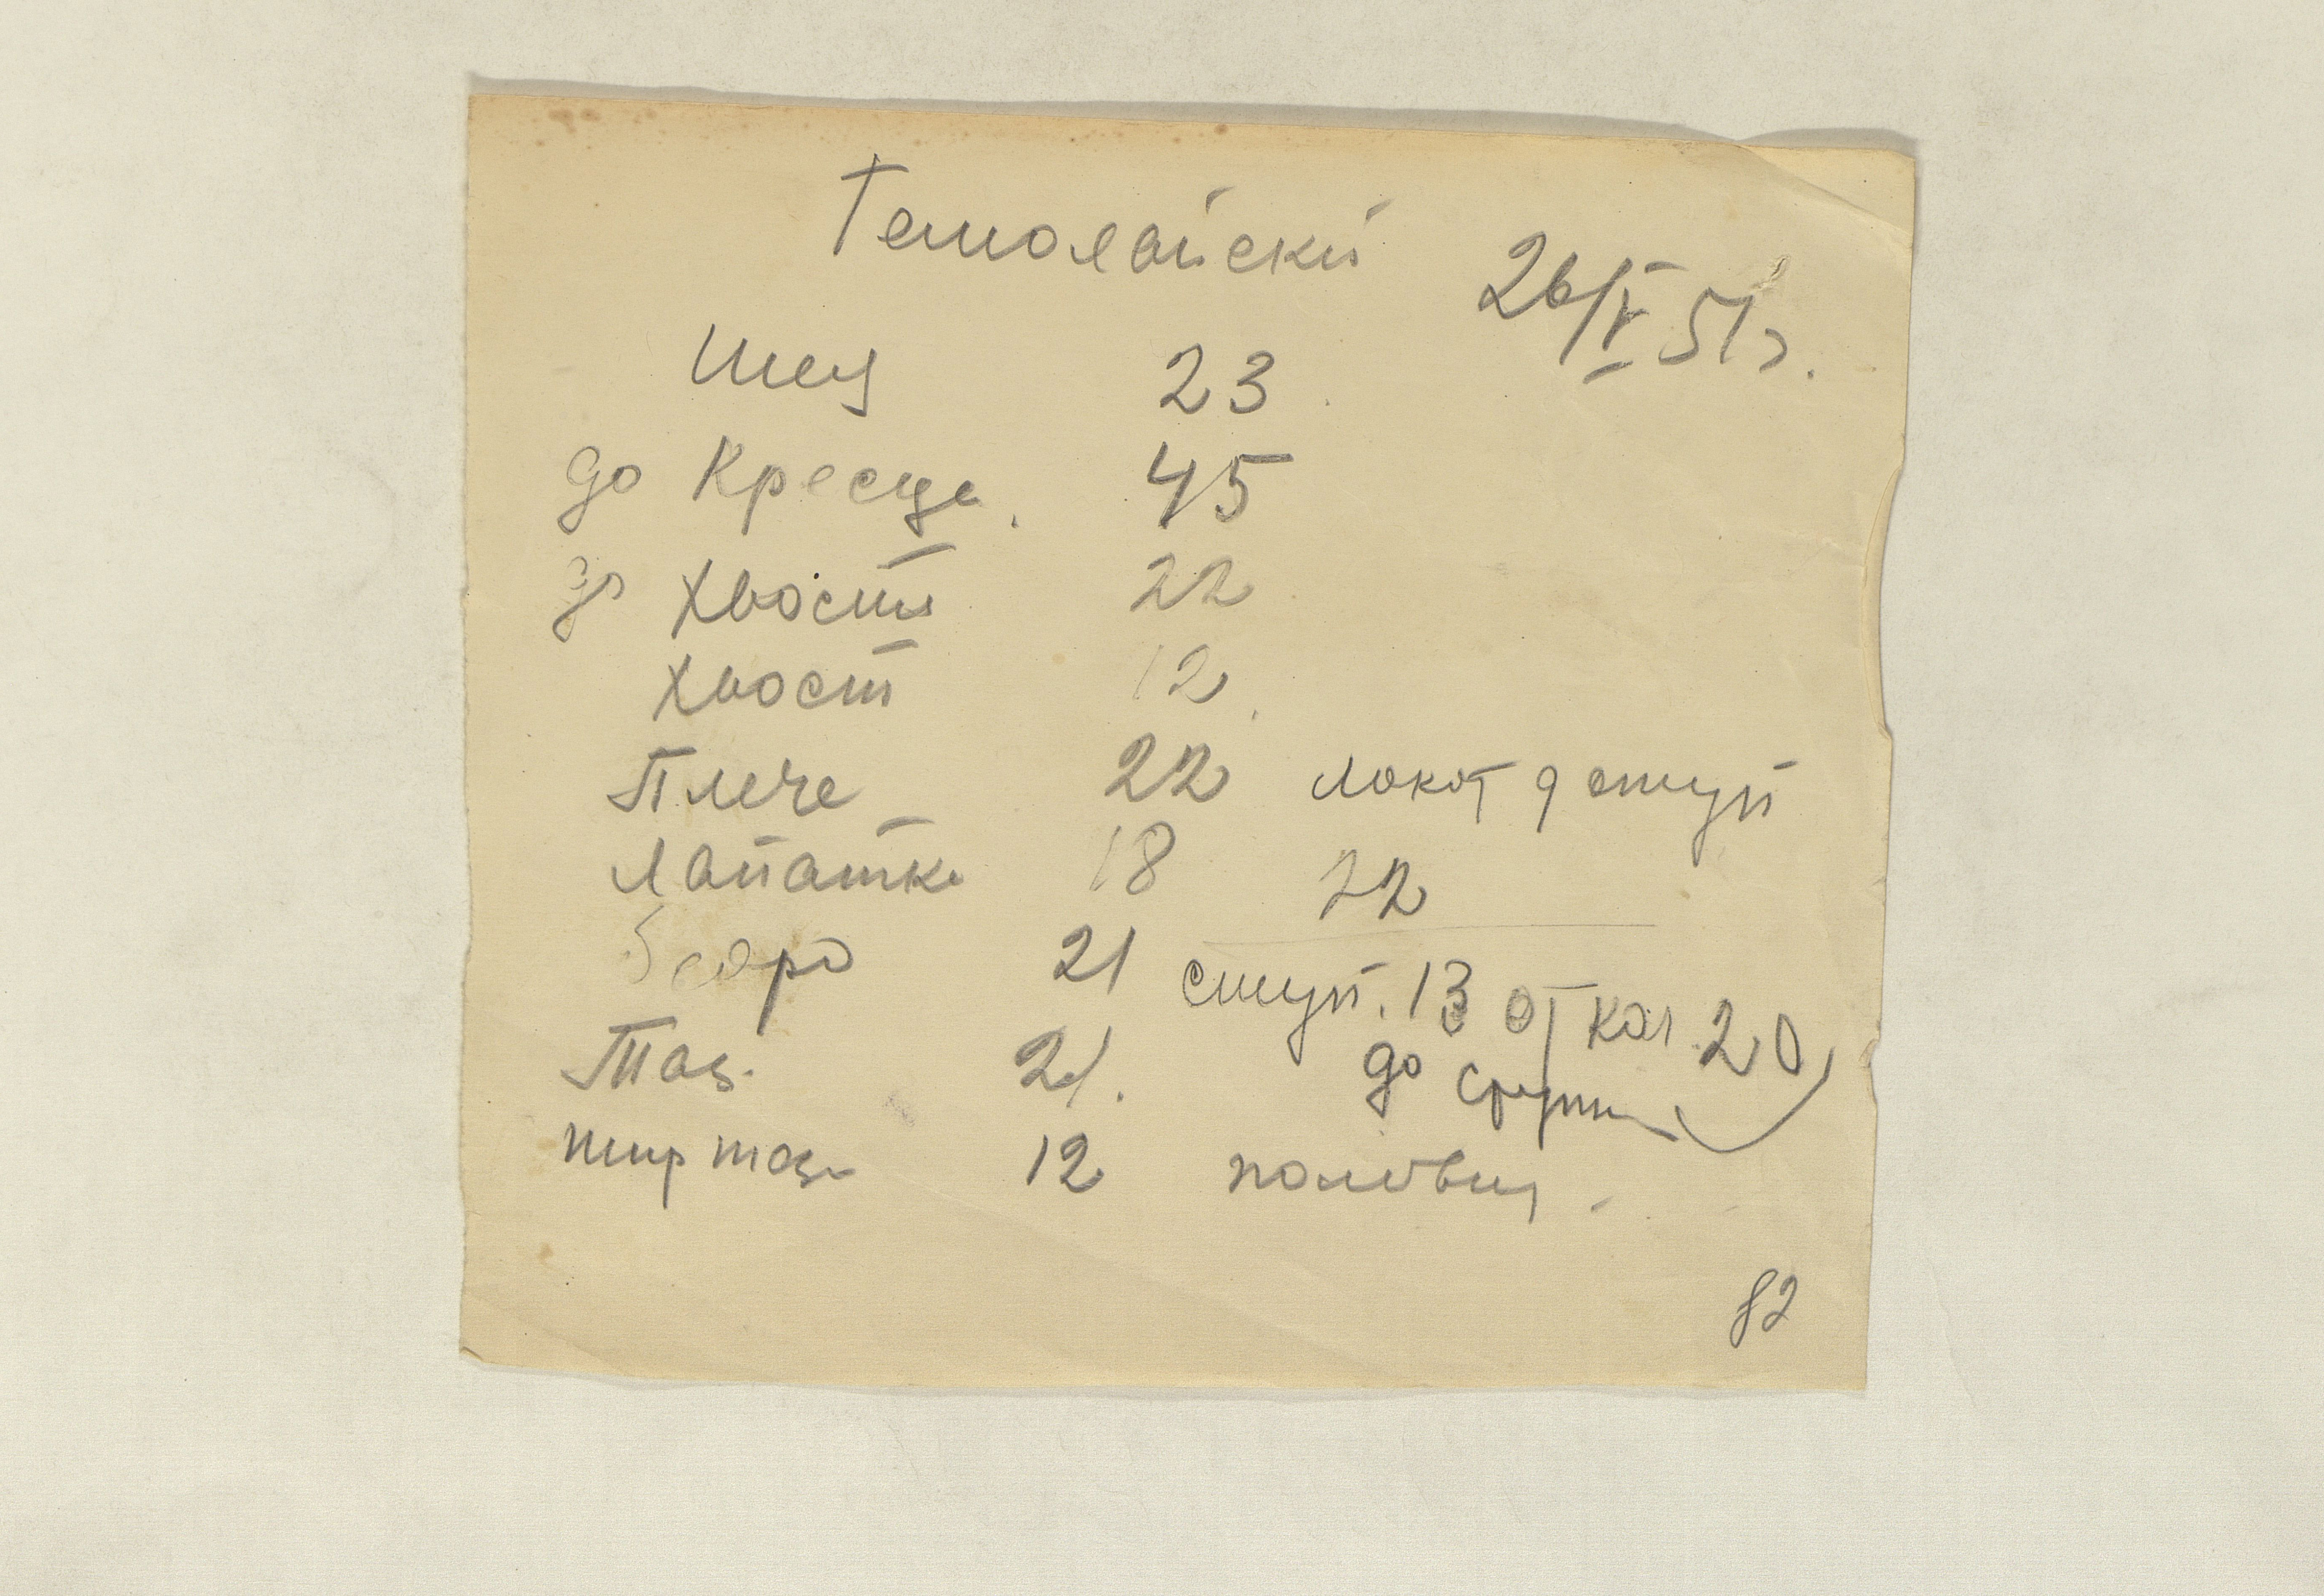 26/V 51г.
Шея 23
до Кресца. 45
до Хвоста 22
Хвост 12
Плече 22 локот д ступ
Лапатка 18 22
Бедро 21 ступ. 13 от кол 20
Таз. 21. до ступни
шир таза 12 половин.
82